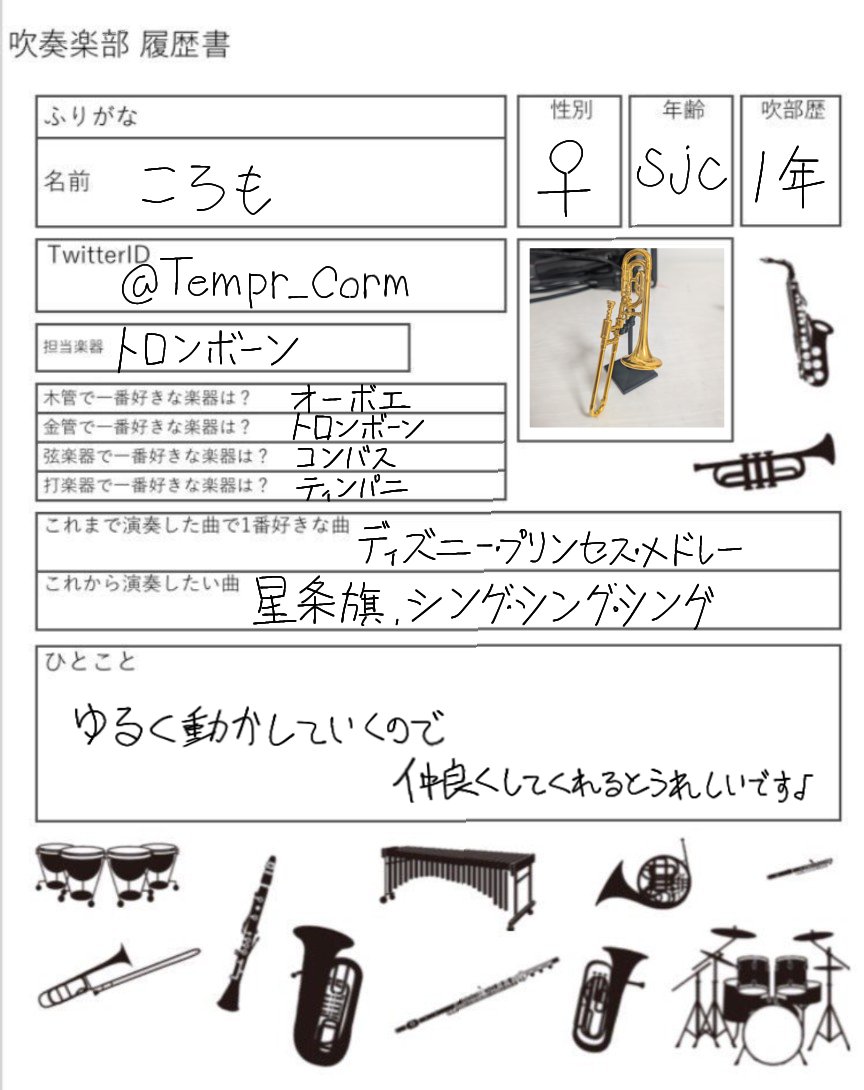 吹奏楽部 履歴書
ふりがな
名前 ころも
性別 ♀
年齢 sjc
吹部歴 1年
TwitterID @Tempr_Corm
担当楽器 トロンボーン
木管で一番好きな楽器は? オーボエ
金管で一番好きな楽器は? トロンボーン
弦楽器で一番好きな楽器は? コンバス
打楽器で一番好きな楽器は? ティンパニ
これまで演奏した曲で1番好きな曲 ディズニー・プリンセス・メドレー
これから演奏したい曲 星条旗, シング・シング・シング
ひとこと
ゆるく動かしていくので
仲良くしてくれるとうれしいです♪